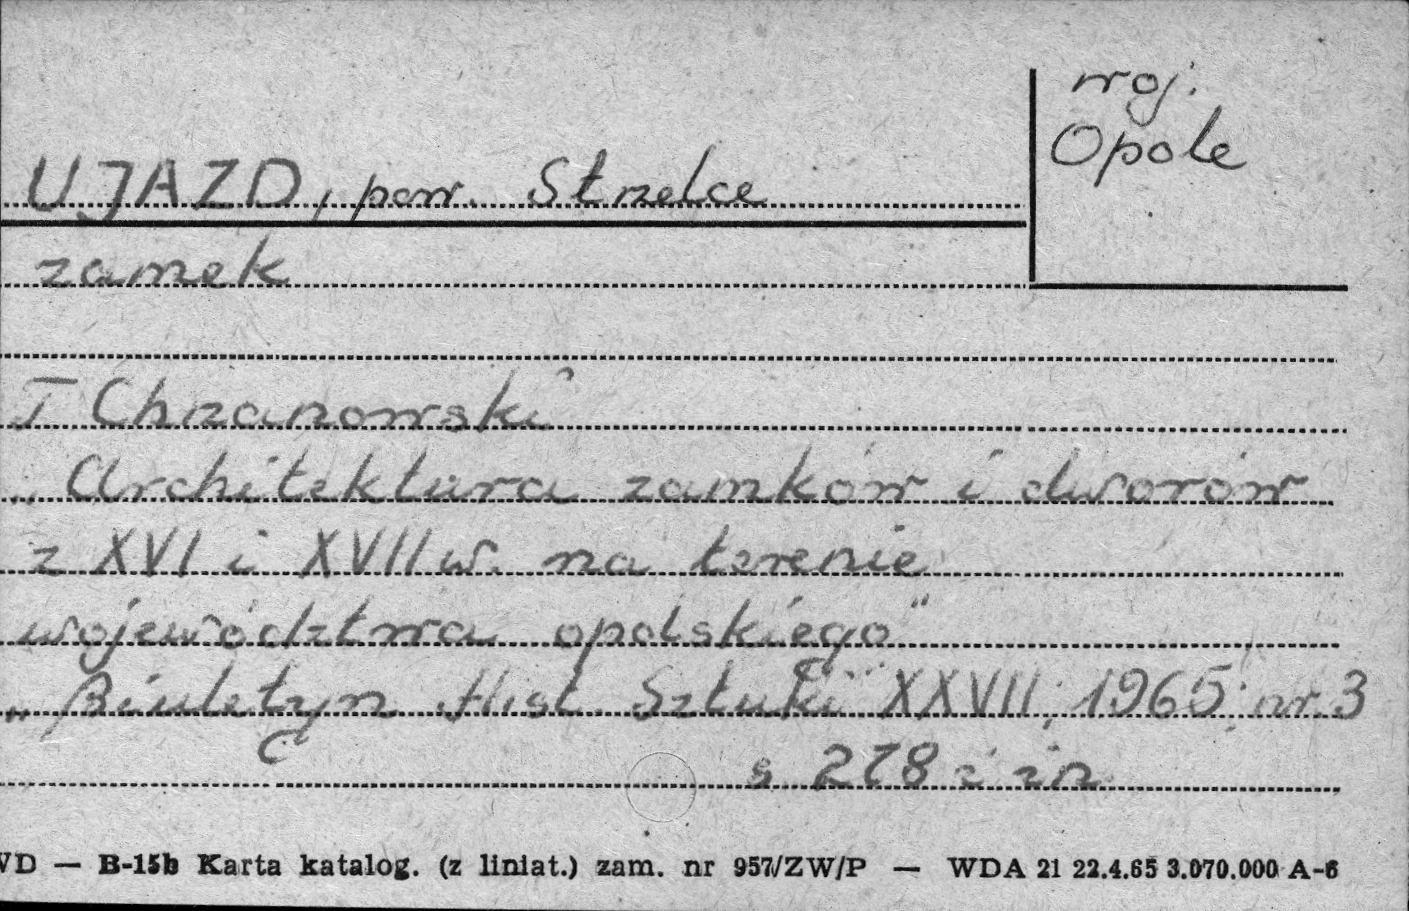 woj.
Opole
UJAZD, pow. Strzelce
zamek
T Chrzanowski
„Architektura zamków i dworów
z XVI i XVII w. na terenie
województwa opolskiego"
„Biuletyn Hist. Sztuki" XXVII, 1965, nr. 3
s 278 i in
WD — B-15b Karta katalog. (z liniat.) zam. nr 957/ZW/P — WDA 21 22.4.65 3.070.000 A-6